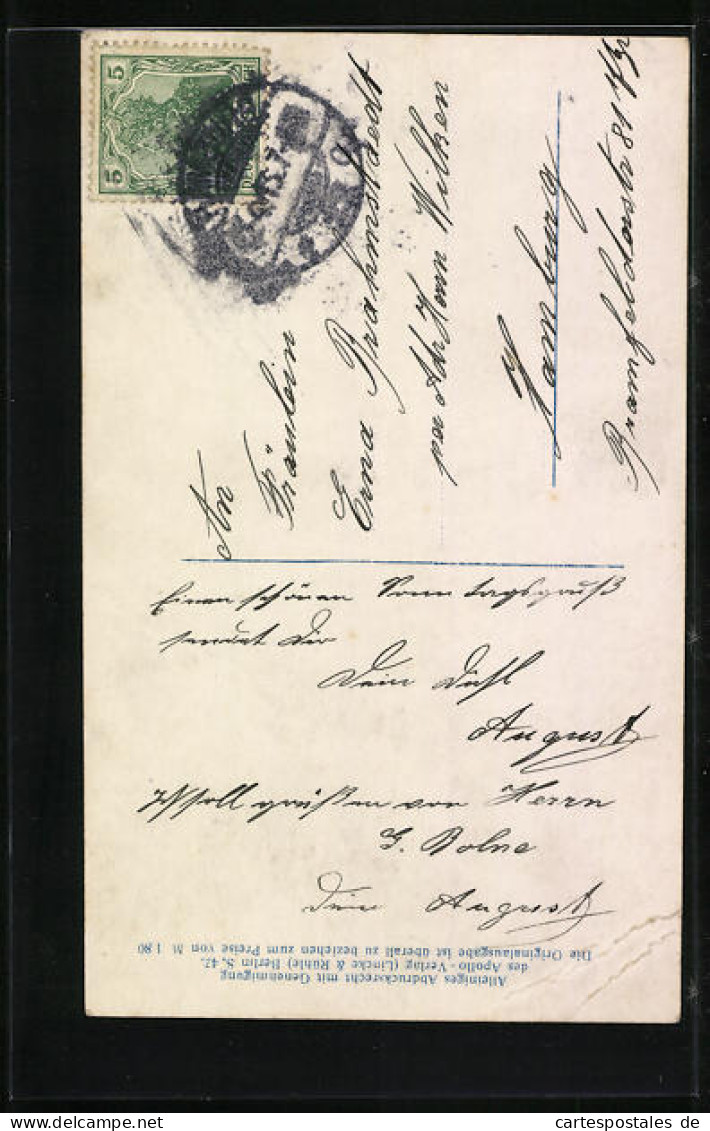 5
5
An
Fräulein
Erna Brahmstaedt
per Adr Herrn Wilken
Hamburg
Bramfelderstr 81
Einen schönen Sonntagsgruß
sendet Dir
Dein
August
Ich soll grüßen von Herrn
G. Bolne
Dein August
Alleiniges Abdrucksrecht mit Genehmigung
des Apollo-Verlag (Lincke & Rühle) Berlin S. 42.
Die Originalausgabe ist überall zu beziehen zum Preise von M 1.80
cartespostales de